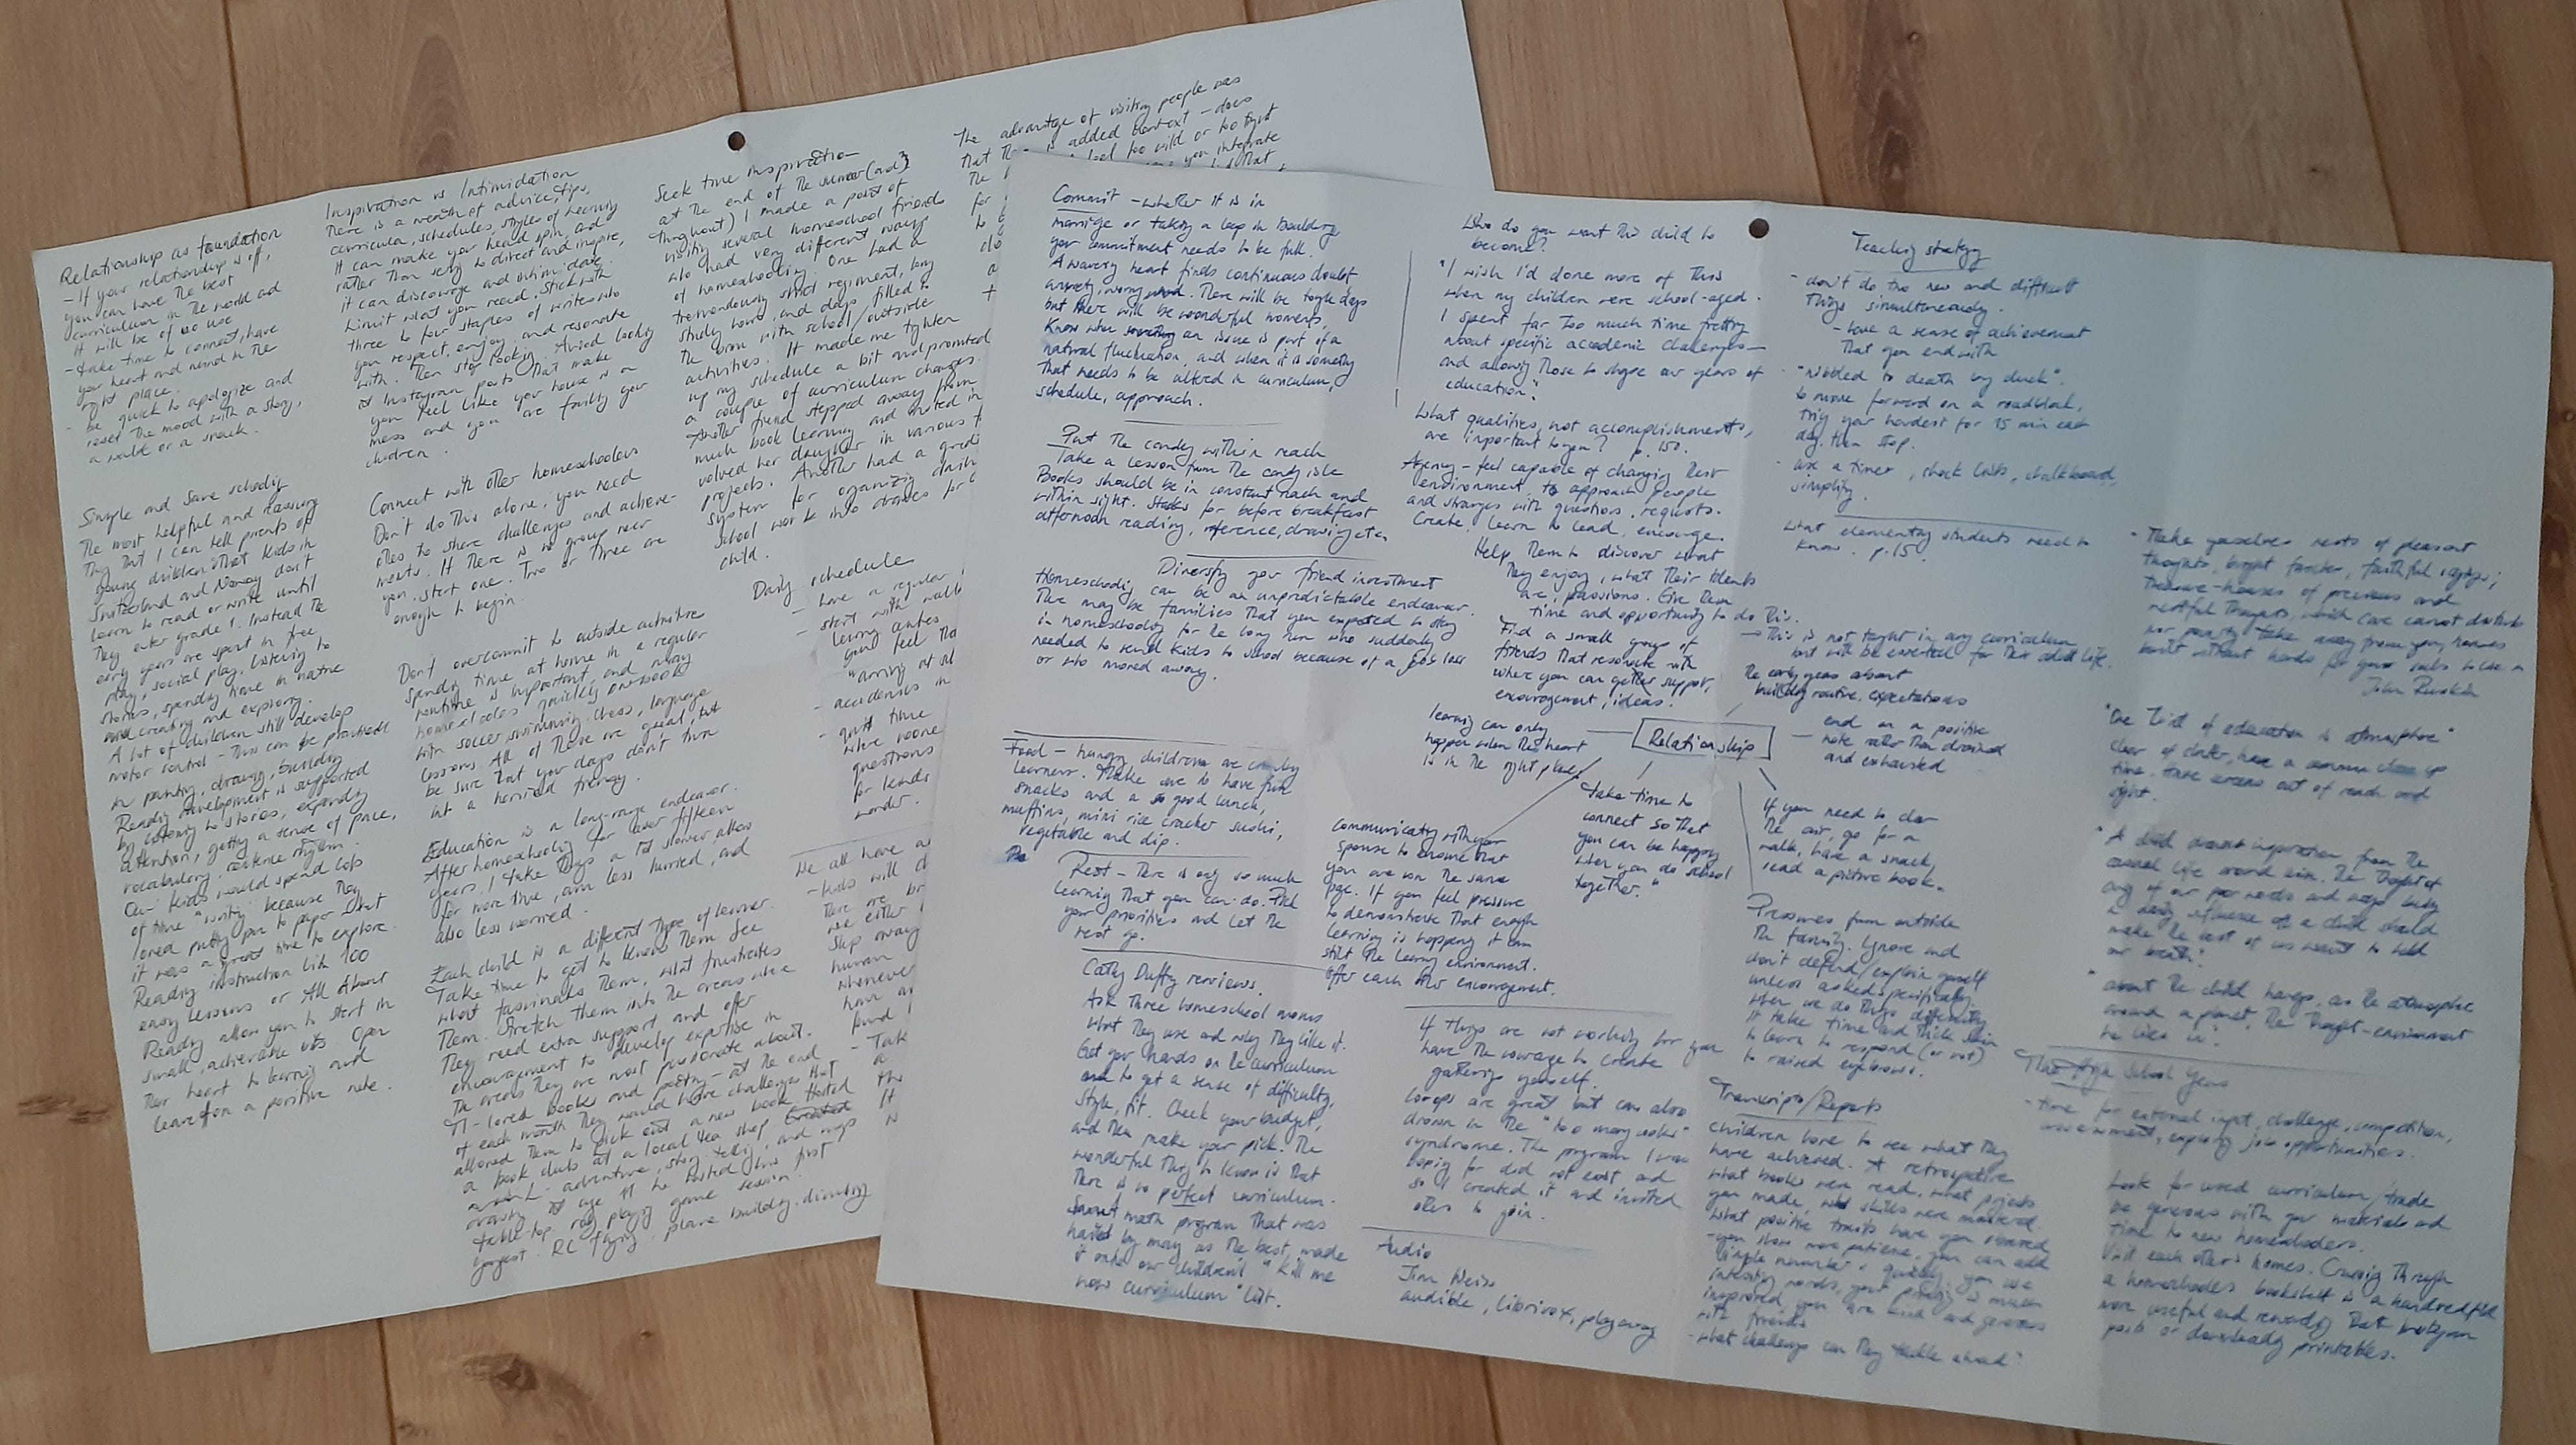 Relationship as foundation
- If your relationship is off,
you can have the best
curriculum in the world and
it will be of no use
- take time to connect, have
your heart and mind in the
right place.
- be quick to apologize and
reset the mood with a story,
a walk or a snack.
Simple and sane schooling
The most helpful and
thing that I can tell parents of
young children that kids in
Switzerland and Norway don't
learn to read or write until
they enter grade 1. Instead the
early years are spent in free
play, social play, listening to
stories, spending time in nature
and creating and exploring.
A lot of children still develop
motor control - this can be
in painting, drawing, building
Reading development is supported
by listening to stories, expanding
attention, getting a sense of pace,
vocabulary, sentence rhythm.
Our kids would spend lots
of time "writing" because they
loved putting pen to paper but
it was a great time to explore.
Reading instruction like 100
easy lessons or All About
Reading allow you to start in
small, achievable bits. Open
their heart to learning and
leave on a positive note.
Inspiration vs Intimidation
There is a wealth of advice, tips,
curricula, schedules, styles of learning
It can make your head spin, and
rather than serving to direct and inspire,
it can discourage and intimidate.
Limit what you read. Stick with
three to four staples of writers who
you respect, enjoy, and resonate
with. Then stop looking. Avoid looking
at Instagram posts that make
you feel like your house is a
mess and you are failing your
children.
Connect with other homeschoolers
Don't do this alone, you need
others to share challenges and achieve-
ments. If there is no group near
you, start one. Two or three are
enough to begin.
Don't overcommit to outside activities
Spending time at home in a regular
routine is important, and many
homeschoolers quickly overbook
with soccer, swimming, chess, language
lessons. All of these are great, but
be sure that your days don't turn
into a harried frenzy.
Education is a long-range endeavor.
After homeschooling for over fifteen
years, I take things a lot slower, allow
for more time, am less hurried, and
also less worried.
Each child is a different type of learner.
Take time to get to know them. See
what fascinates them, what frustrates
them. Stretch them into the areas where
they need extra support and offer
encouragement to develop expertise in
the areas they are most passionate about.
- loved books and poetry - at the end
of each month they would have challenges that
allowed them to pick out a new book. Hosted
a book club at a local tea shop. Created
- adventure, story telling, and maps
drawing. At age 11 he hosted his first
table-top role playing game session.
youngest - RC flying, plane building,
Seek true inspiration
at the end of the summer (and
throughout) I made a point of
visiting several homeschool friends
who had very different ways
of homeschooling. One had a
tremendously strict regiment, long
study hours, and days filled to
the brim with school/outside
activities. It made me tighten
up my schedule a bit and prompted
a couple of curriculum changes.
Another friend stepped away from
much book learning and
volved her daughter in various
projects. Another had a
system for organizing
school work into for
child.
Daily schedule
- have a regular
- start with
- academics in
- quiet time
where
questions
for
wonder.
We all have
- kids will
There are
we either
slip away
human
whenever
have
find
- Take
a
the
It
The advantage of visiting people was
that is added context - does
feel too wild or too tight
you integrate
that
Commit - whether it is in
marriage or taking a leap in bouldering
your commitment needs to be full.
A wavery heart finds continuous doubt,
anxiety, worry. There will be tough days
but there will be wonderful moments.
Know when an issue is part of a
natural fluctuation, and when it is something
that needs to be altered in curriculum,
schedule, approach.
Put the candy within reach
Take a lesson from the candy isle
Books should be in constant reach and
within sight. Stacks for before breakfast
afternoon reading, reference, drawing etc.
Diversify your friend investment
Homeschooling can be an unpredictable endeavor.
There may be families that you expected to stay
in homeschooling for the long run who suddenly
needed to send kids to school because of a job loss
or who moved away.
Food - hungry children are
learners. Make sure to have fun
snacks and a good lunch,
muffins, mini rice cracker sushi,
vegetable and dip.
Rest - There is only so much
learning that you can do. Pick
your priorities and let the
rest go.
Cathy Duffy reviews.
Ask three homeschool moms
what they use and why they like it.
Get your hands on the curriculum
to get a sense of difficulty,
style, fit. Check your budget,
and then make your pick. The
wonderful thing to know is that
there is no perfect curriculum.
math program that was
hailed by many as the best, made
it onto our children's "kill me
now curriculum" list.
Who do you want this child to
become?
"I wish I'd done more of this
when my children were school-aged.
I spent far too much time fretting
about specific academic challenges—
and allowing those to shape our years of
education."
What qualities, not accomplishments,
are important to you? p. 150.
Agency - feel capable of changing their
environment, to approach people
and strangers with questions, requests.
Create, learn to lead, encourage.
Help them to discover what
they enjoy, what their talents
are, passions. Give them
time and opportunity to do this.
→ This is not taught in any curriculum
but will be essential for their adult life.
Find a small group of
friends that resonate with
where you can gather support,
encouragement, ideas.
learning can only
happen when the heart
is in the right place.
Relationship
The early years about
building routine, expectations
end on a positive
note rather than drained
and exhausted
Take time to
connect so that
you can be happy
when you do school
together."
If you need to clear
the air, go for a
walk, have a snack,
read a picture book.
Communicating with your
spouse to ensure that
you are on the same
page. If you feel pressure
to demonstrate that enough
learning is happening it can
stilt the learning environment.
Offer each other encouragement.
If things are not working for you
have the courage to create
gatherings yourself.
Co-ops are great but can also
drown in the "too many cooks"
syndrome. The program I was
hoping for did not exist and
so I created it and invited
others to join.
Audio
Jim Weiss
audible, librivox, playaway
Teaching strategy
- don't do two new and difficult
things simultaneously.
- have a sense of achievement
that you end with
- "nibbled to death by duck".
to move forward on a roadblock,
try your hardest for 15 min each
day, then stop.
- use a timer, check lists, chalkboard,
simplify.
What elementary students need to
know. p. 15
Pressures from outside
the family. Ignore and
don't defend/explain yourself
unless asked specifically.
When we do things differently
it take time and thick skin
to learn to respond (or not)
to raised eyebrows.
Transcripts/Reports
Children love to see what they
have achieved. A retrospective
what books were read, what projects
you made, what skills were mastered.
What positive traits have you observed
- you show more patience, you can add
simple numbers quickly, you use
interesting words, your printing is much
improved, you are kind and generous
with friends
- What challenges can they tackle ahead?
" Make yourselves nests of pleasant
thoughts, bright fancies, faithful sayings;
treasure-houses of precious and
restful thoughts, which care cannot disturb
nor poverty take away from you, houses
built without hands for your souls to live in
John Ruskin
"The first of education is atmosphere"
clear of clutter, have a common clean up
time. Have screens out of reach and
sight.
" A child draws inspiration from the
casual life around him. The thought of
any of our poor words and ways being
make the best of us want to hold
our breath."
" about the child hangs, as the atmosphere
around a planet, the thought-environment
he lives in".
The High School Years
- time for external input, challenge, competition,
assessment, exploring job opportunities.
Look for used curriculum/trade
be generous with your materials and
time to new homeschoolers.
Visit each other's homes. Cruising through
a homeschooler's bookshelf is a hundredfold
more useful and rewarding than Instagram
posts or downloading printables.